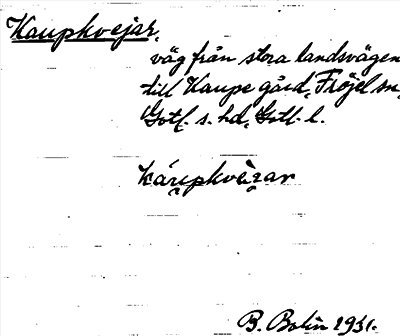 Kaupkvejar,
väg från stora landsvägen
till Kaupe gård, Fröjel sn,
Gotl. s. hd, Gotl. l.
B. Bolin 1931.